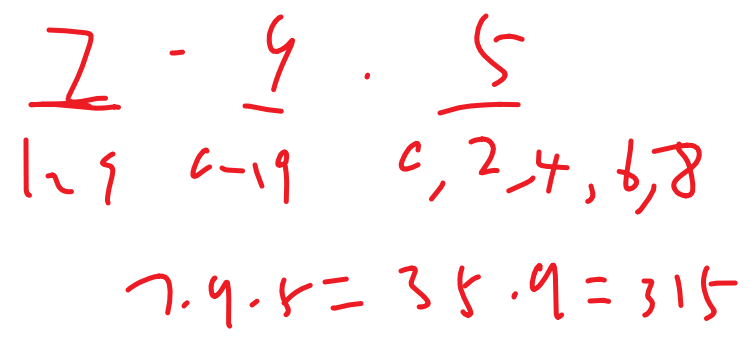 7 · 9 · 5
1~9 0~9 0,2,4,6,8
7·9·5=35·9=315